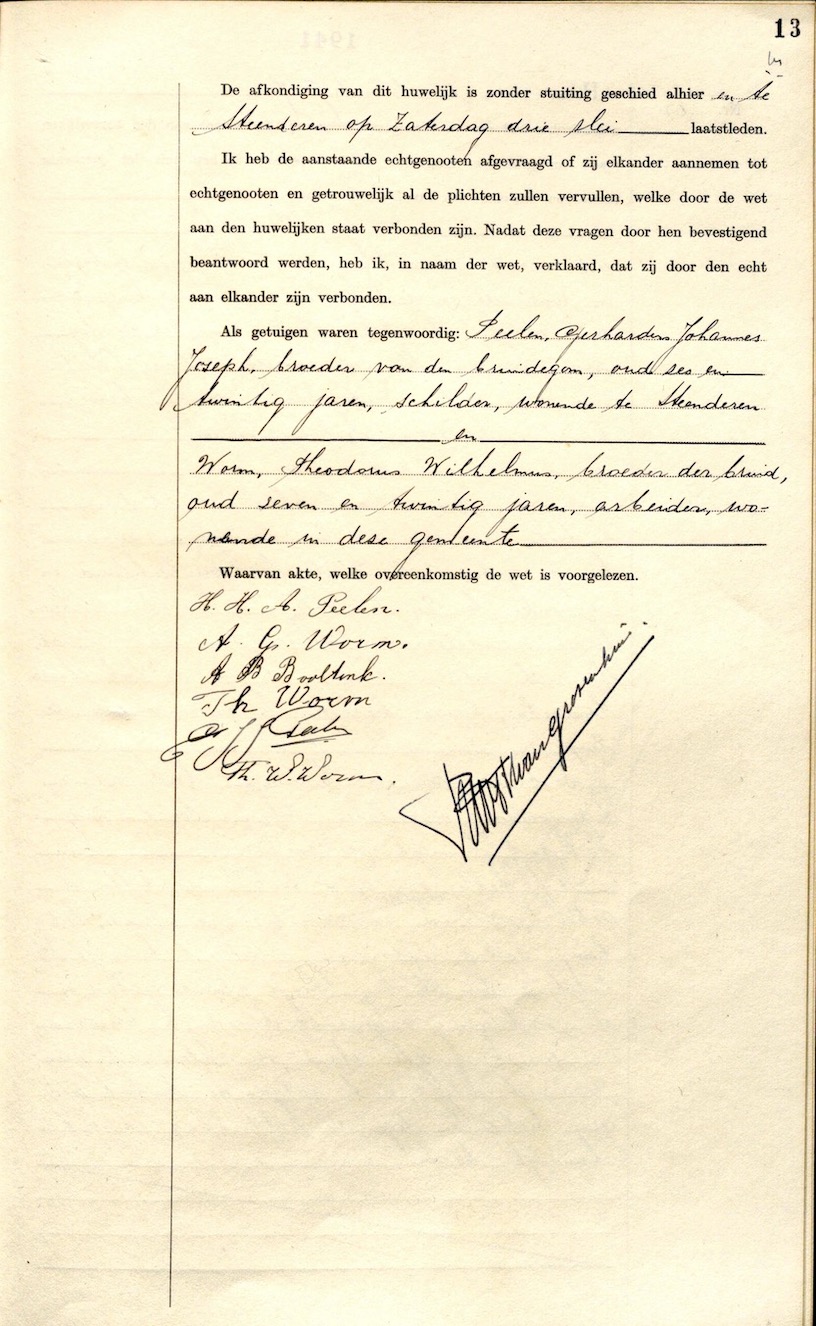 13
De afkondiging van dit huwelijk is zonder stuiting geschied alhier en te
Steenderen op Zaterdag drie Mei laatstleden.
Ik heb de aanstaande echtgenooten afgevraagd of zij elkander aannemen tot
echtgenooten en getrouwelijk al de plichten zullen vervullen, welke door de wet
aan den huwelijken staat verbonden zijn. Nadat deze vragen door hen bevestigend
beantwoord werden, heb ik, in naam der wet, verklaard, dat zij door den echt
aan elkander zijn verbonden.
Als getuigen waren tegenwoordig: Peelen, Gerhardus Johannes
Joseph, broeder van den bruidegom, oud zes en
twintig jaren, schilder, wonende te Steenderen
en
Worm, Theodorus Wilhelmus, broeder der bruid,
oud zeven en twintig jaren, arbeider, wo-
nende in deze gemeente
Waarvan akte, welke overeenkomstig de wet is voorgelezen.
H. H. A. Peelen.
A. G. Worm.
A B Booltink.
Th Worm
G J J Peelen
Th. W. Worm.